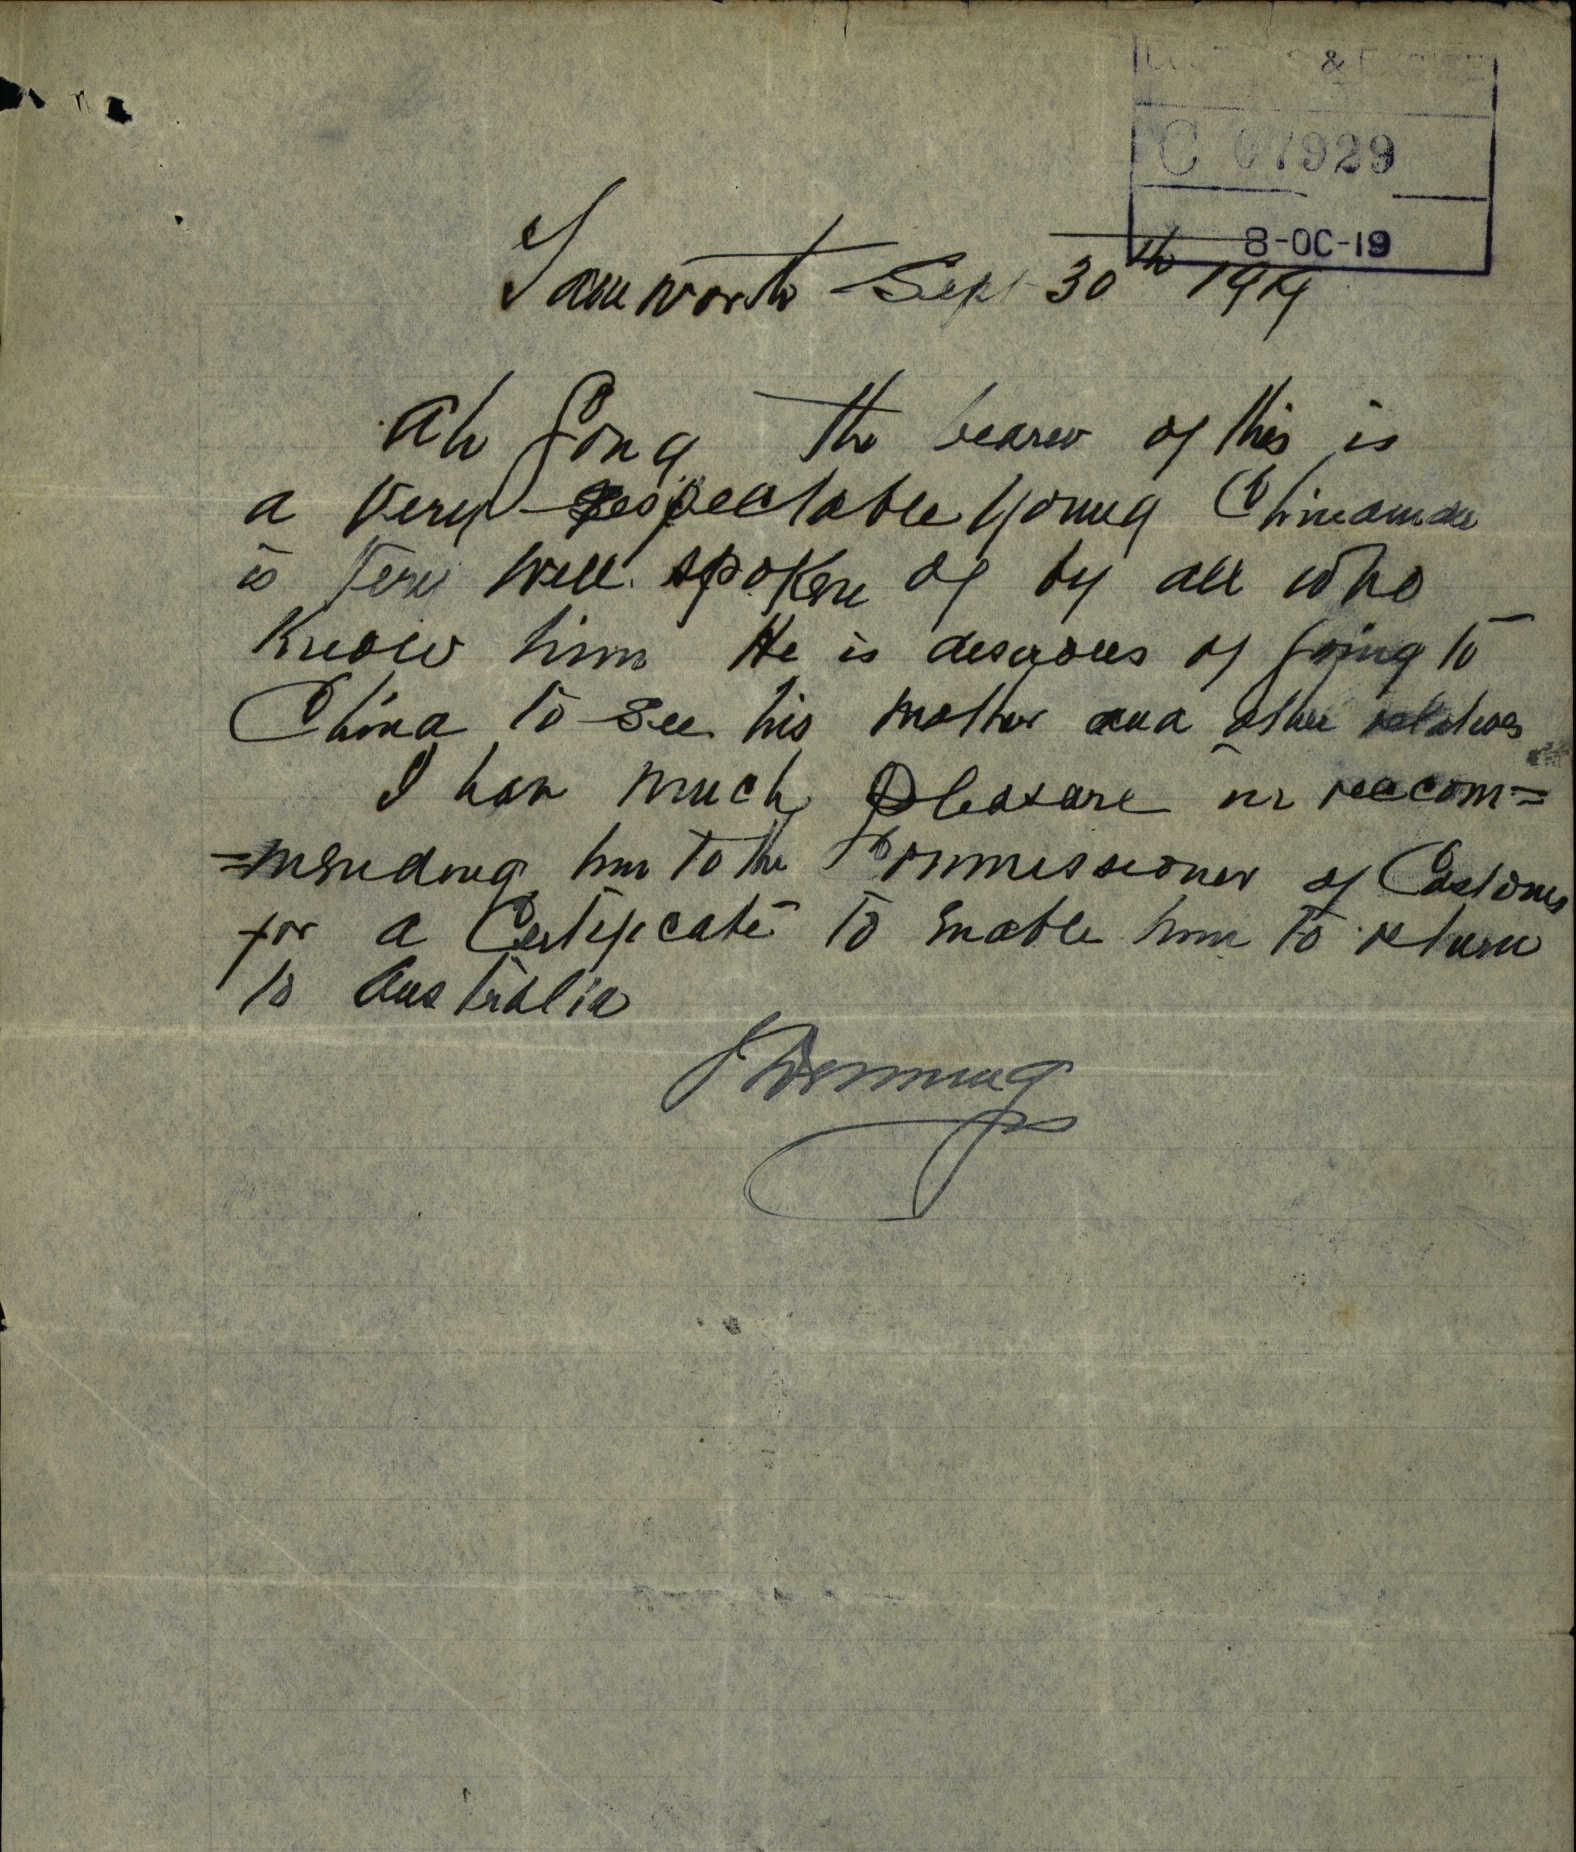 & EXCISE
C 07929
8-OC-19
Tamworth Sept 30th 1919
Ah Gong the bearer of this is
a very respectable young Chinaman
is very well spoken of by all who
know him He is desirous of going to
China to see his mother and other relatives
I have much pleasure in reccom=
=mending him to the Commissioner of Customs
for a Certificate to enable him to return
to Australia